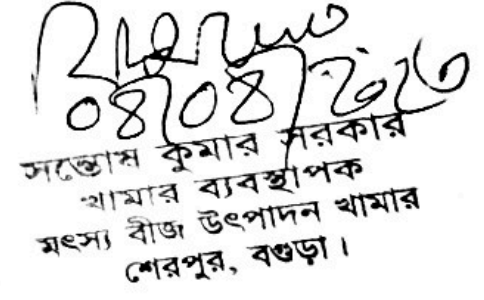 ০৪/০৪/২০২৩
সন্তোষ কুমার সরকার
খামার ব্যবস্থাপক
মৎস্য বীজ উৎপাদন খামার
শেরপুর, বগুড়া।